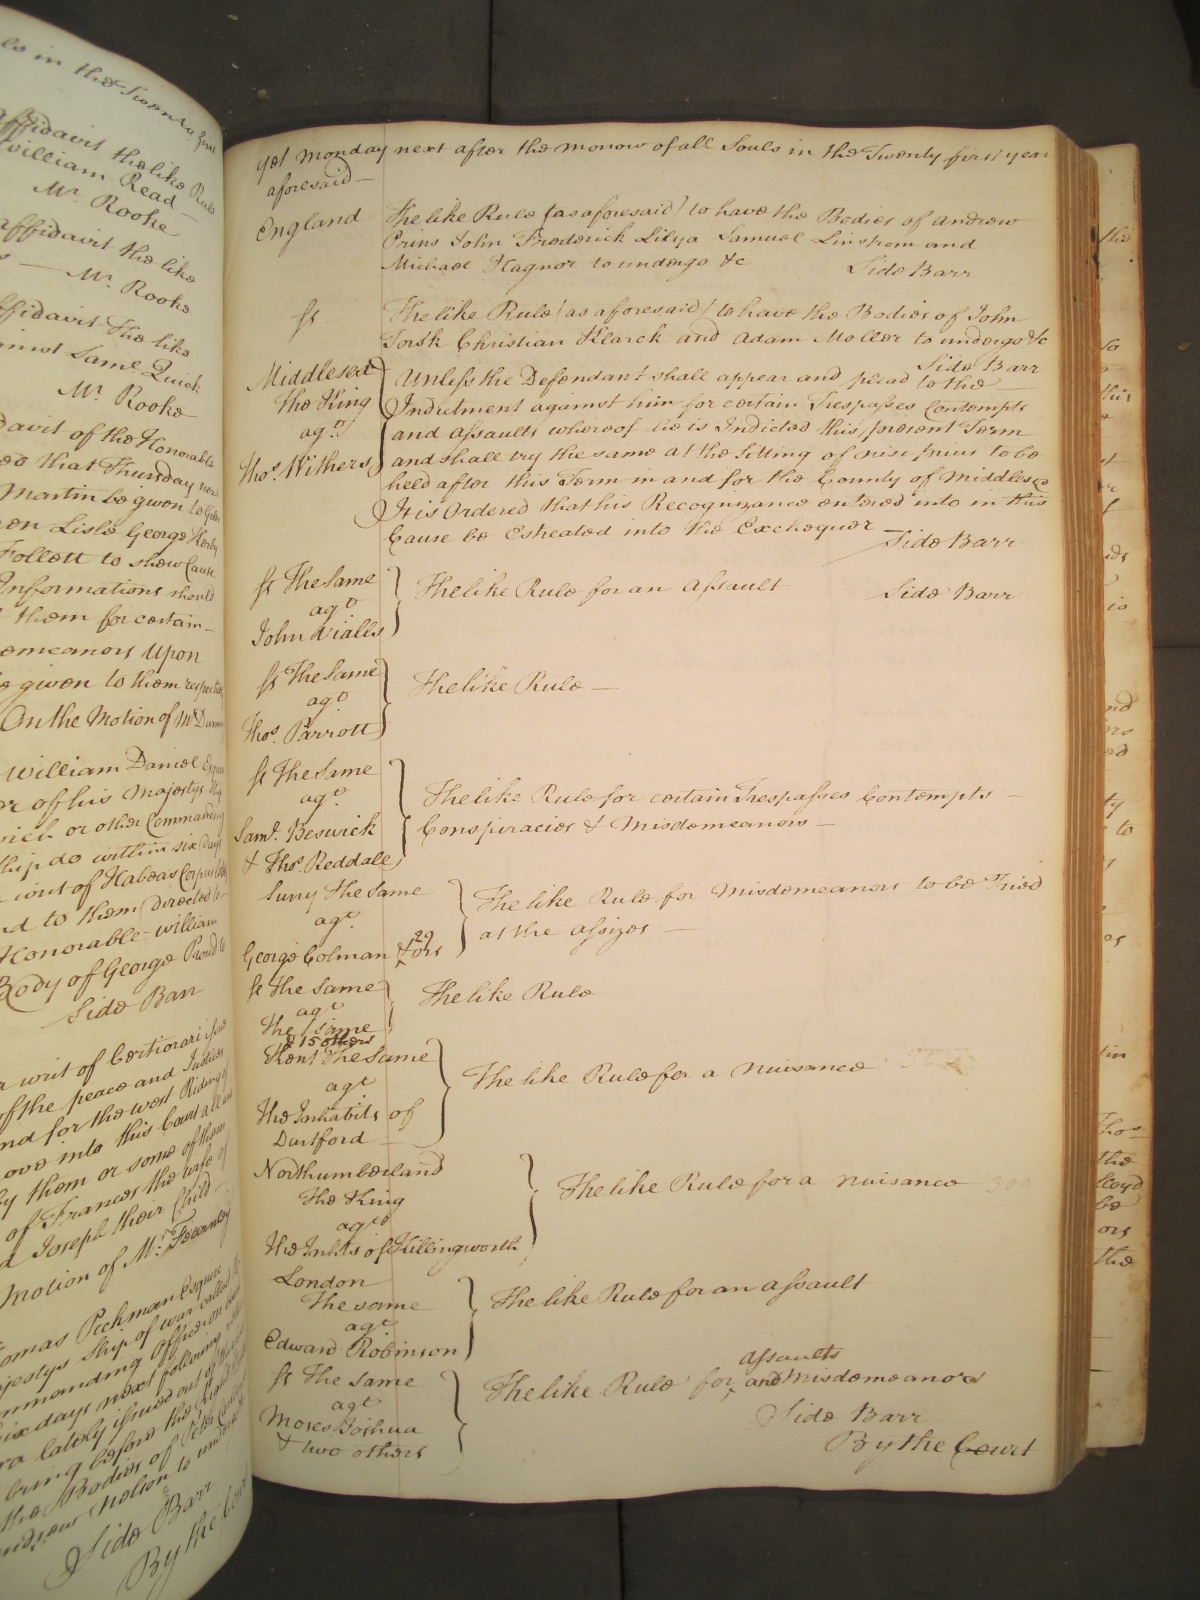 yet Monday next after the morrow of all Souls in the Twenty first year
aforesaid
England
The like Rule (as aforesaid) to have the Bodies of Andrew
Prins John Frederick Lilya Samuel Linstrom and
Michael Hagnor to undergo &c Side Barr
ss
The like Rule (as aforesaid) to have the Bodies of John
Torsk Christian Klarck and Adam Moller to undergo &c
Side Barr
Middlesex
The King
agt
Thos. Withers
Unless the Defendant shall appear and plead to the
Indictment against him for certain Trespasses Contempts
and Assaults whereof he is Indicted this present Term
and shall try the same at the Sitting of nisi prius to be
held after this Term in and for the County of Middlesex
It is Ordered that his Recognizance entered into in this
Cause be Estreated into the Exchequer Side Barr
ss The Same
agt
John Vialls
The like Rule for an Assault Side Barr
ss The Same
agt
Thos. Parrott
The like Rule
ss The Same
agt
Saml. Beswick
& Thos. Reddall
The like Rule for certain Trespasses Contempts
Conspiracies & Misdemeanors
Surry The Same
agt
George Colman & 29 ors
The like Rule for Misdemeanors to be Tried
at the Assizes
ss The Same
agt
The same
& 15 others
The like Rule
Kent The Same
agt
The Inhabits of
Dartford
The like Rule for a Nuisance
Northumberland
The King
agt
The Inhts of Killingworth
The like Rule for a Nuisance
London
The same
agt
Edward Robinson
The like Rule for an Assault
ss The Same
agt
Moses Joshua
& two others
The like Rule for Assaults and Misdemeanors
Side Barr
By the Court
ls in the Twenty first
affidavit the like Rule
William Read
Mr. Rooke
affidavit the like
Mr. Rooke
ffidavit the like
ainst Saml. Quick
Mr. Rooke
davit of the Honorable
ed that Thursday next
Martin be given to
on Lisle George
Follett to show Cause
Informations should
them for certain
emeanors upon
e given to them respectively
On the Motion of Mr
William Daniel Esquire
or of his Majestys Ship
wich or other Commanding
Ship do within six Days
writ of Habeas Corpus
d to them directed
Honorable William
Body of George
Side Barr
a writ of Certiorari
of the peace and Justices
nd for the West Riding of
ove into this Court all
by them or some of them
of Frances the wife of
Joseph their Child
Motion of Mr. Fearnley
omas Peckman Esquire
jestys Ship of war called
mmanding Officer on board
six days next following
ra lately issued out of
bring before the Right
the Bodies of Peter
Andrew Nelson to undergo
Side Barr
By the Court